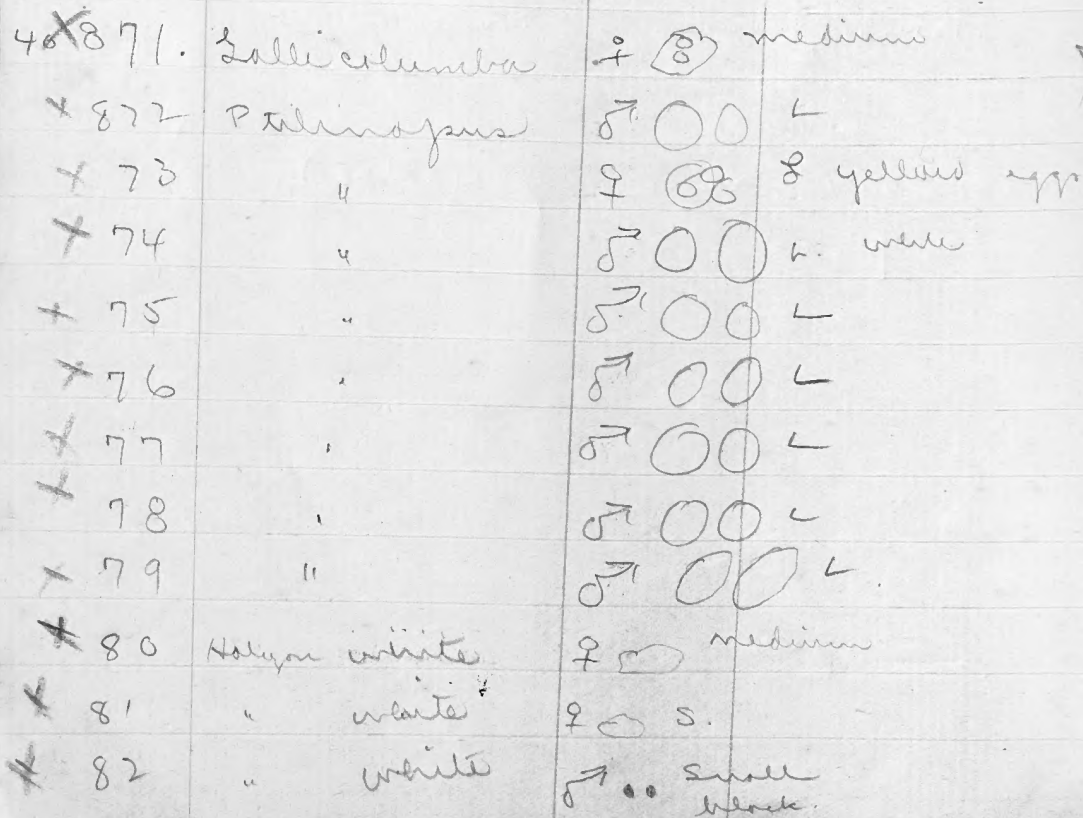 40 X 871. Gallicolumba ♀ medium
X 872 Ptilinopus ♂ L
X 73 " ♀ L yellow eggs
X 74 " ♂ L.
X 75 " ♂ L
X 76 " ♂ L
X 77 " ♂ L
X 78 " ♂ L
X 79 " ♂ L.
X 80 Halcyon white ♀ medium
X 81 " white ♀ S.
X 82 " white ♂ Small
black.